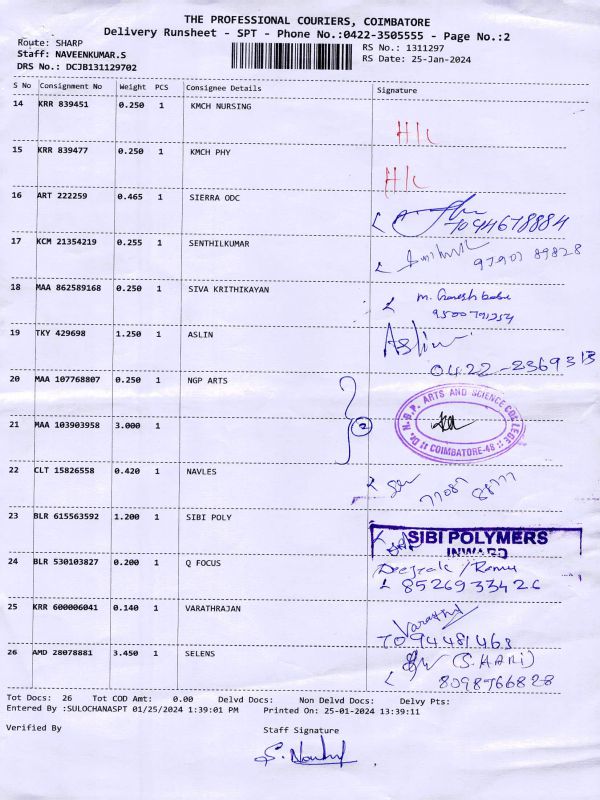 THE PROFESSIONAL COURIERS, COIMBATORE
Delivery Runsheet - SPT - Phone No.:0422-3505555 - Page No.:2
Route: SHARP
Staff: NAVEENKUMAR.S
DRS No.: DCJB131129702
RS No.: 1311297
RS Date: 25-Jan-2024
S No Consignment No Weight PCS Consignee Details Signature
14 KRR 839451 0.250 1 KMCH NURSING
H/C
15 KRR 839477 0.250 1 KMCH PHY
H/C
16 ART 222259 0.465 1 SIERRA ODC
7094678884
17 KCM 21354219 0.255 1 SENTHILKUMAR
97907 89828
18 MAA 862589168 0.250 1 SIVA KRITHIKAYAN
m. Ganesh babu
19 TKY 429698 1.250 1 ASLIN
Aslin
0422-2369313
20 MAA 107768807 0.250 1 NGP ARTS
21 MAA 103903958 3.000 1
2
DR. N.G.P. ARTS AND SCIENCE COLLEGE
COIMBATORE-48
22 CLT 15826558 0.420 1 NAVLES
77087 88777
23 BLR 615563592 1.200 1 SIBI POLY
SIBI POLYMERS
INWARD
24 BLR 530103827 0.200 1 Q FOCUS
8526933426
25 KRR 600006041 0.140 1 VARATHRAJAN
7094481463
26 AMD 28078881 3.450 1 SELENS
(S.HARI)
8098766828
Tot Docs: 26 Tot COD Amt: 0.00 Delvd Docs: Non Delvd Docs: Delvy Pts:
Entered By :SULOCHANASPT 01/25/2024 1:39:01 PM Printed On: 25-01-2024 13:39:11
Verified By Staff Signature